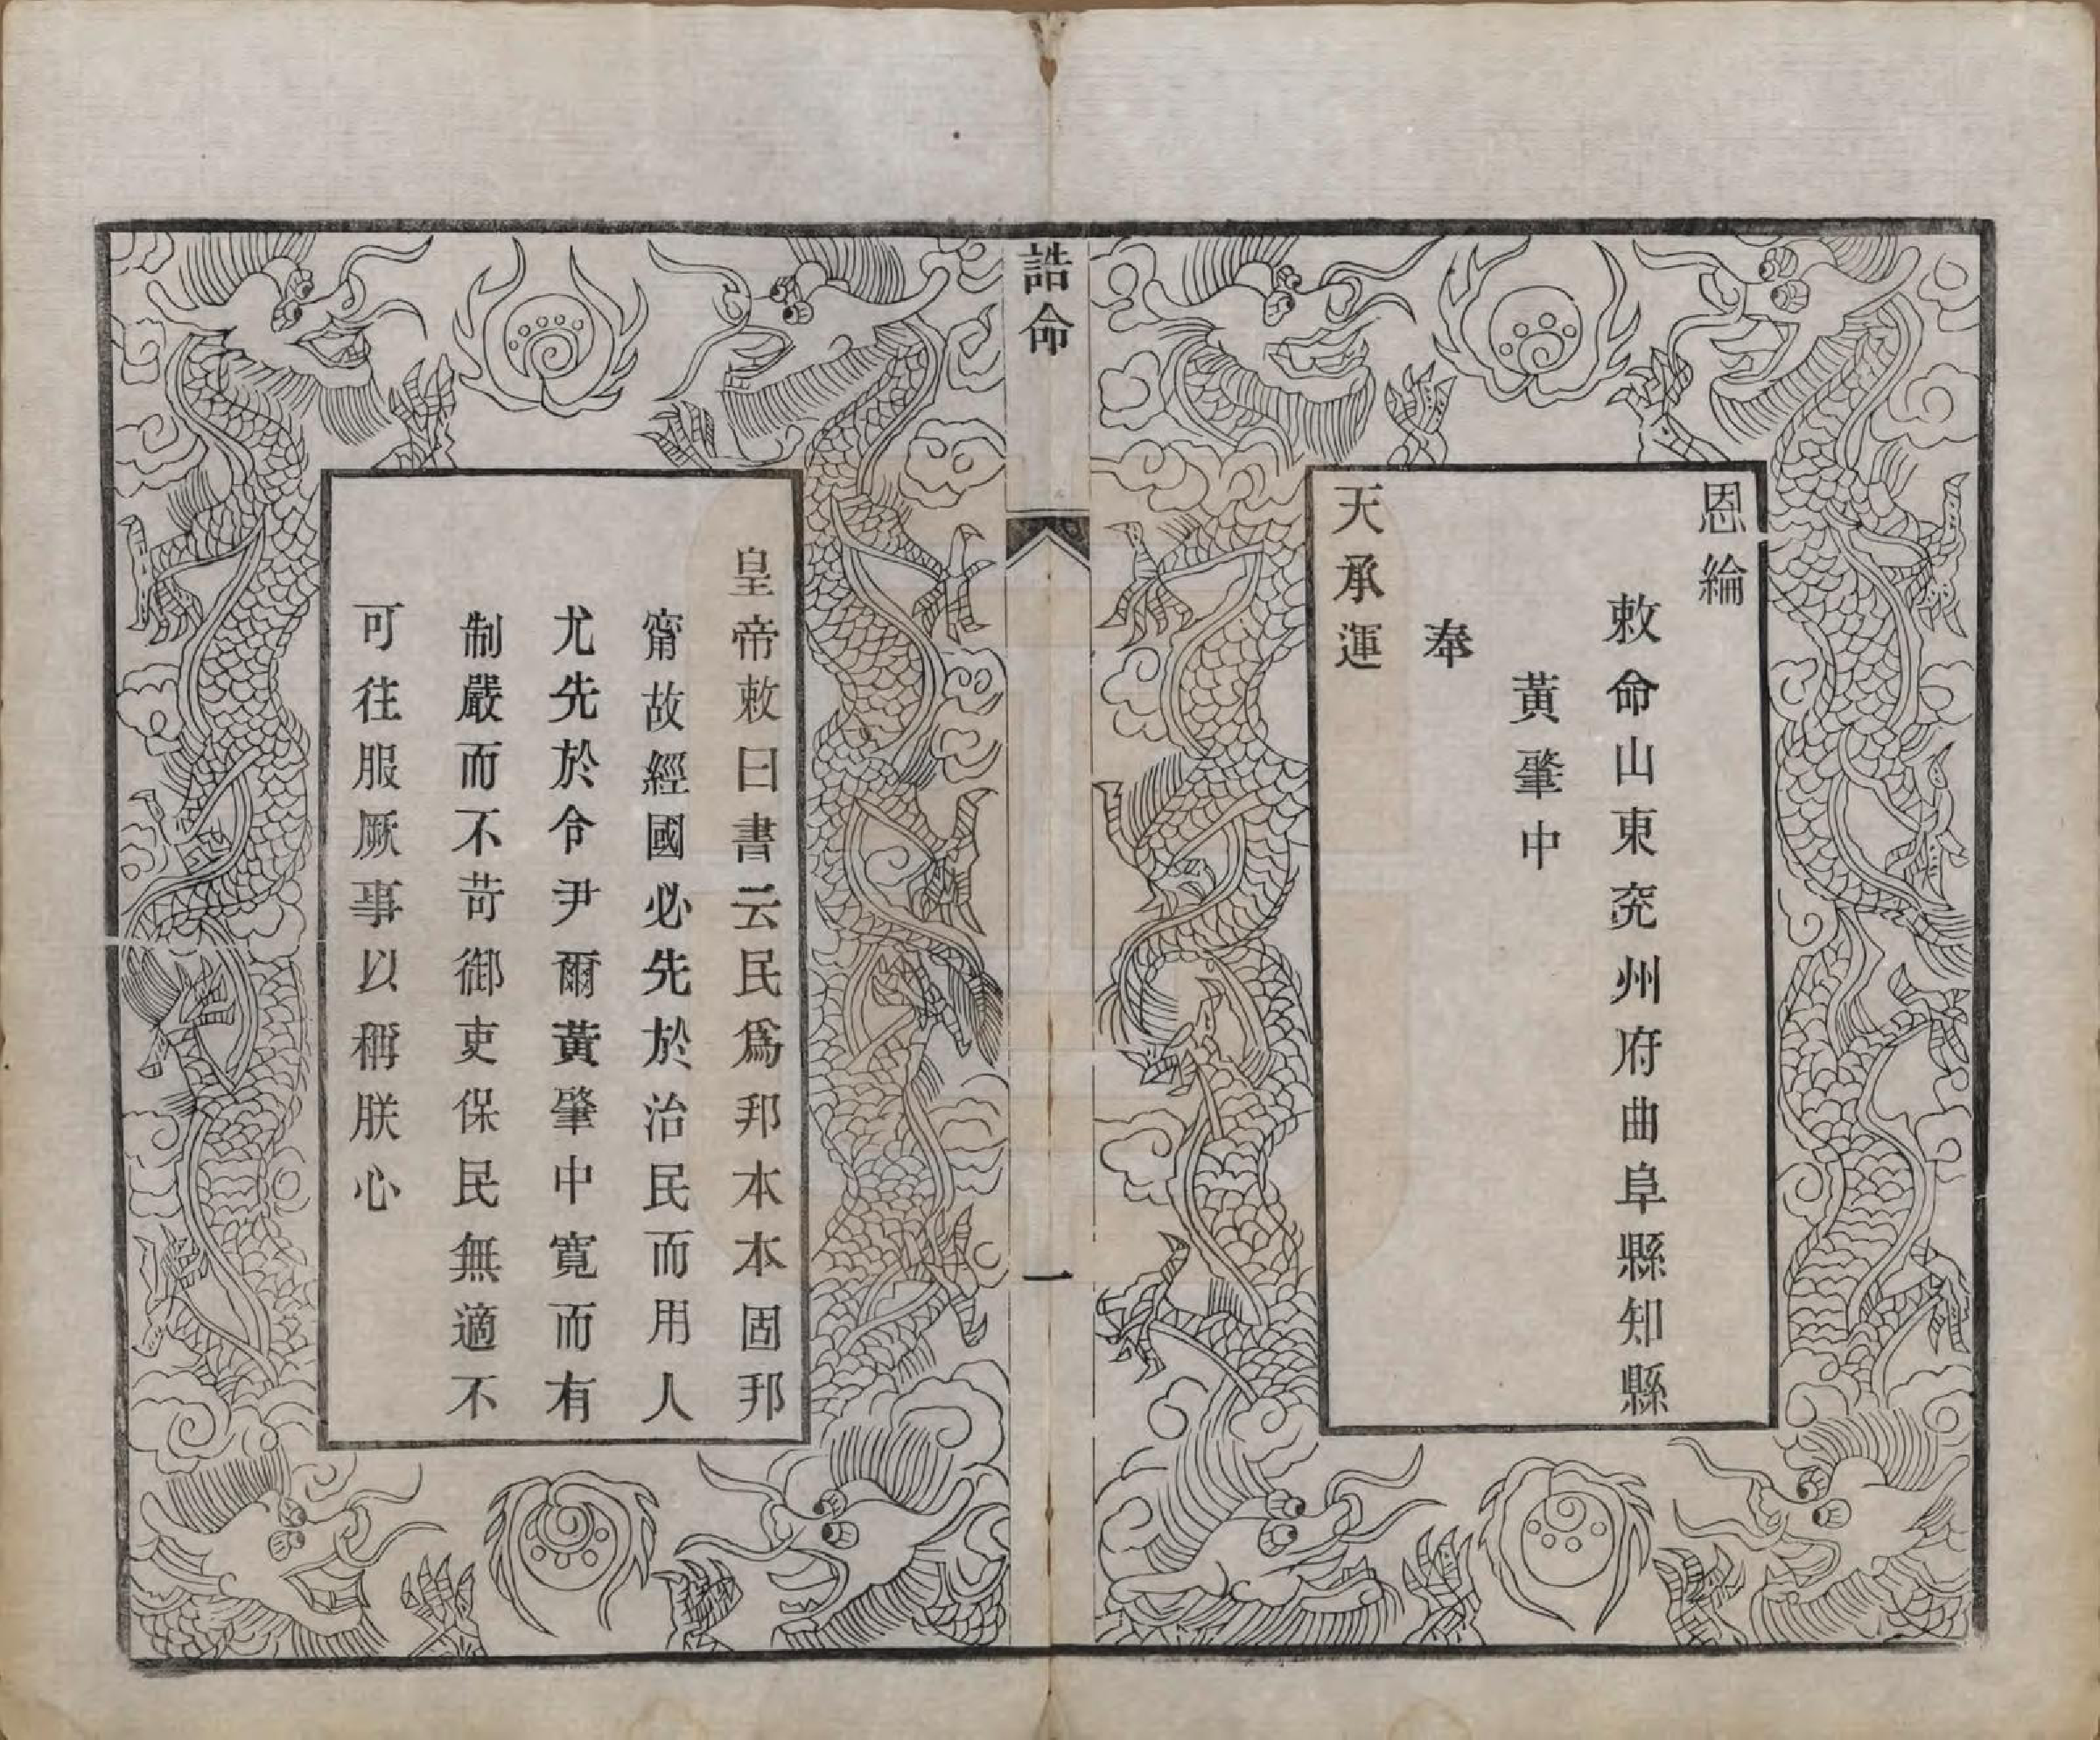 恩綸
敕命山東兖州府曲阜縣知縣
黃肇中
奉
天承運
誥命
一
皇帝敕曰書云民爲邦本本固邦
甯故經國必先於治民而用人
尤先於令尹爾黃肇中寬而有
制嚴而不苛御吏保民無適不
可往服厥事以稱朕心